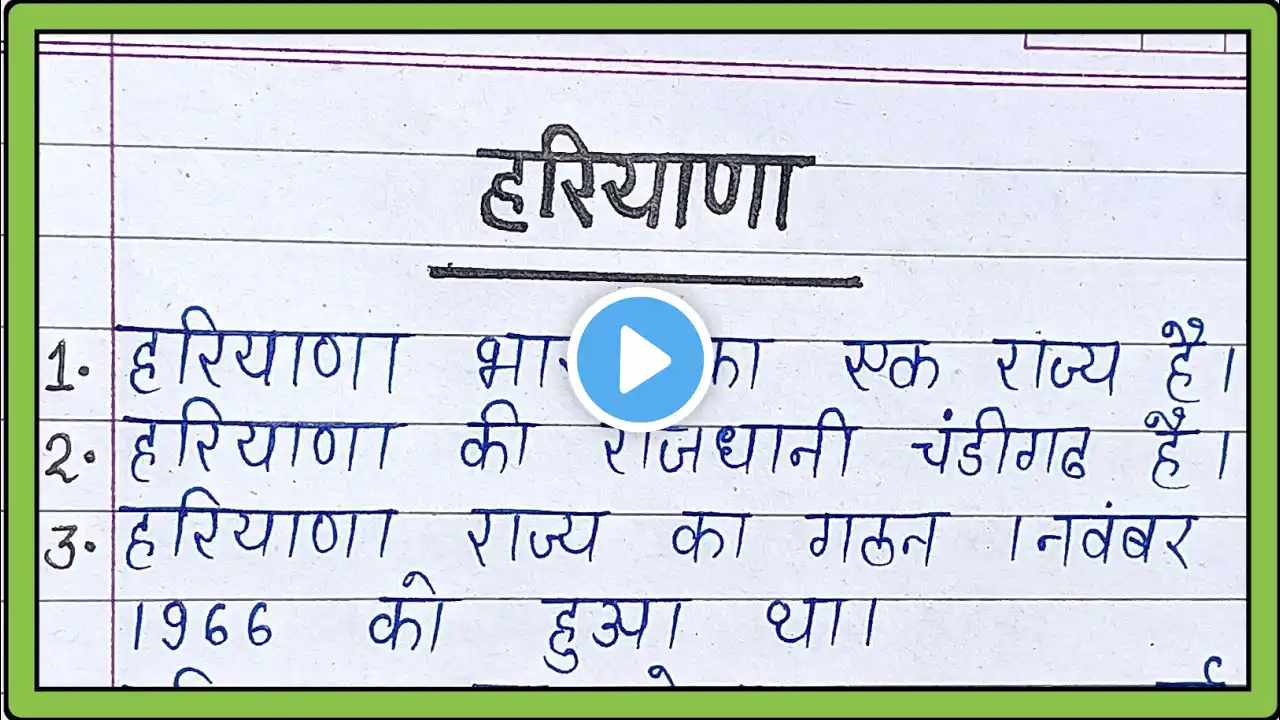 हरियाणा
1. हरियाणा का एक राज्य है।
2. हरियाणा की राजधानी चंडीगढ है।
3. हरियाणा राज्य का गठन 1 नवंबर
1966 को हुआ था।